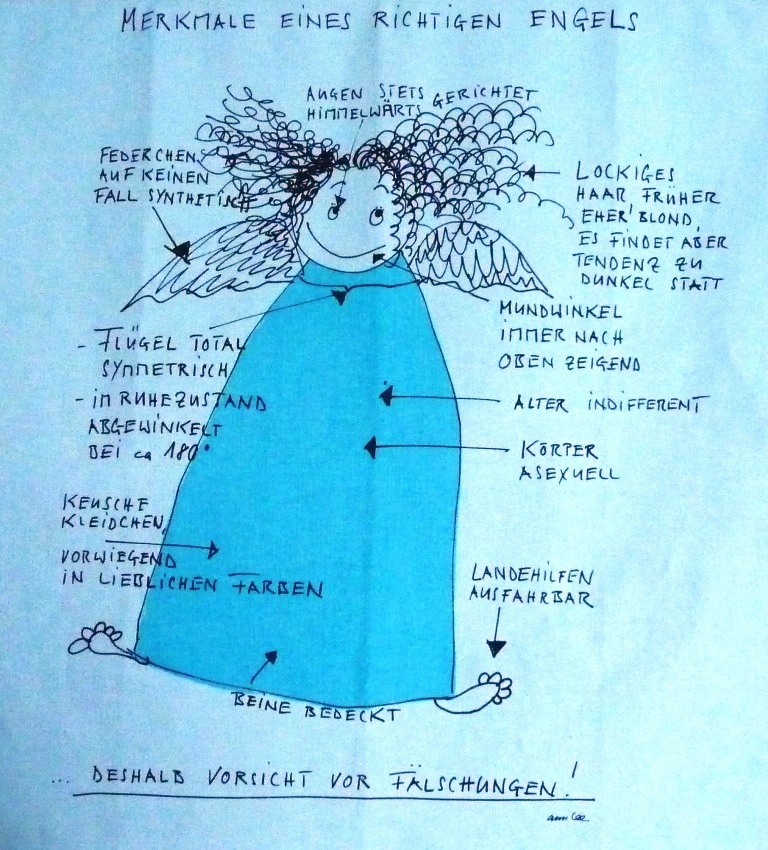 MERKMALE EINES RICHTIGEN ENGELS
AUGEN STETS GERICHTET
HIMMELWÄRTS
FEDERCHEN
AUF KEINEN
FALL SYNTHETISCH
LOCKIGES
HAAR, FRÜHER
EHER BLOND,
ES FINDET ABER
TENDENZ ZU
DUNKEL STATT
MUNDWINKEL
IMMER NACH
OBEN ZEIGEND
- FLÜGEL TOTAL
SYMMETRISCH
- IM RUHEZUSTAND
ABGEWINKELT
BEI ca 180°
ALTER INDIFFERENT
KÖRPER
ASEXUELL
KEUSCHE
KLEIDCHEN,
VORWIEGEND
IN LIEBLICHEN FARBEN
LANDEHILFEN
AUSFAHRBAR
BEINE BEDECKT
... DESHALB VORSICHT VOR FÄLSCHUNGEN!